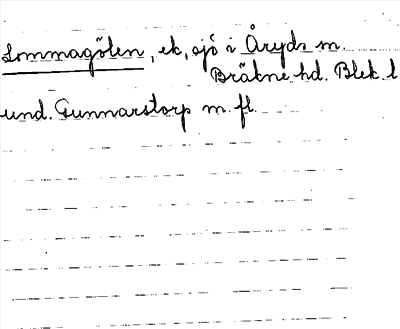 Lommagölen, ek, sjö i Åryds m.
Bräkne hd. Blek. l
und. Gunnarstorp m. fl.